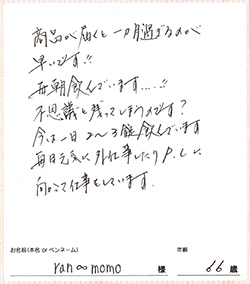 商品が届くと一ヵ月過ぎるのが
早いです!!
毎朝飲んでいます…!!
不思議と残ってしまうのです?
今は一日2〜3錠飲んでいます
毎日元気に外仕事したりP.Cに
向かって仕事をしています.
お名前(本名 or ペンネーム)
年齢
ran∞momo 様 66 歳